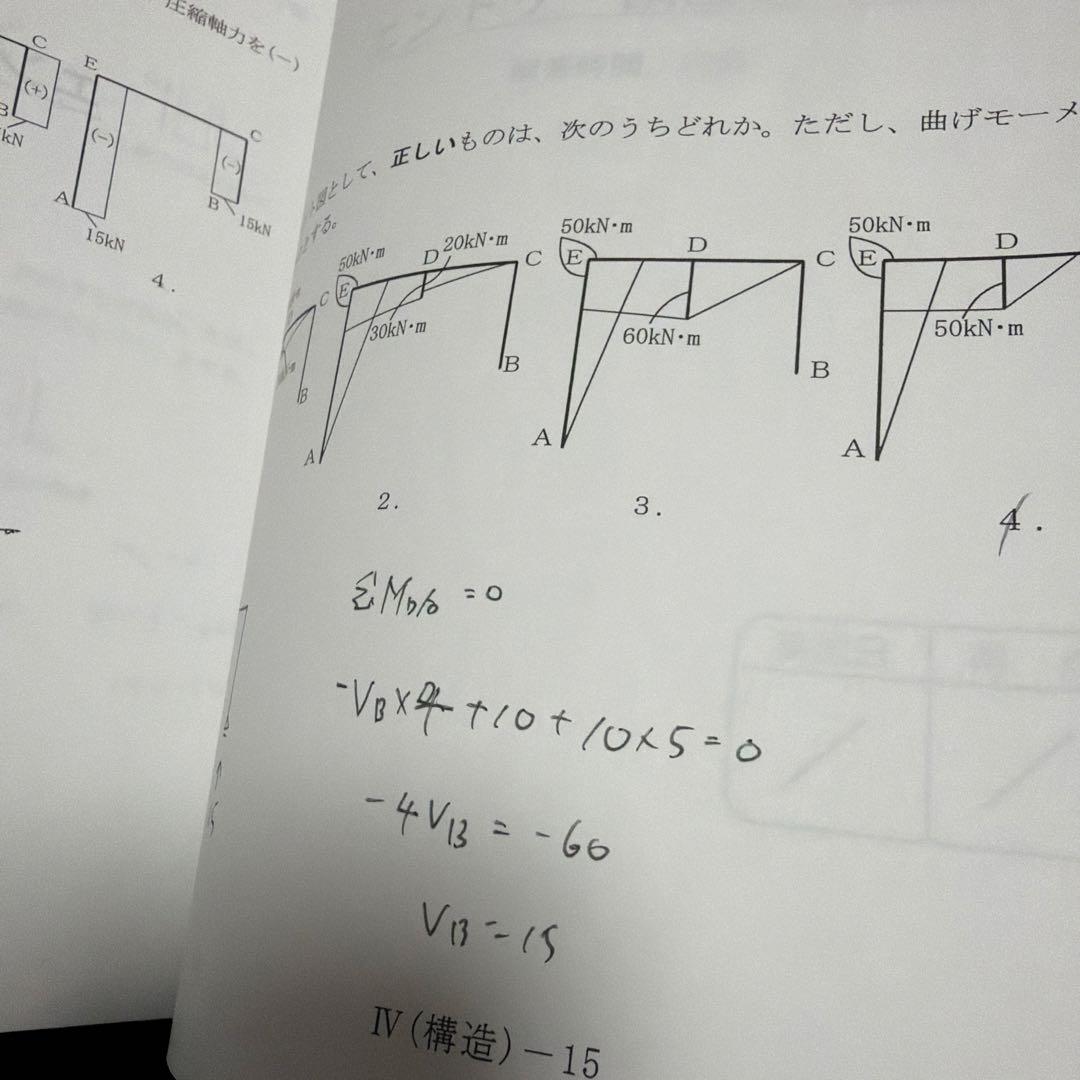 圧縮軸力を(−)
C
(+)
B
kN
E
(−)
C
(−)
A
B
15kN
15kN
4.
正しいものは、次のうちどれか。ただし、曲げモーメ
ト図として、
する。
C
B
50kN·m
20kN·m
D
C
E
30kN·m
B
A
2.
50kN·m
D
C
E
60kN·m
B
A
3.
50kN·m
D
E
50kN·m
A
4.
= 0
-VB× 4 +10 + 10×5 = 0
-4VB = -60
VB = 15
Ⅳ(構造)−15